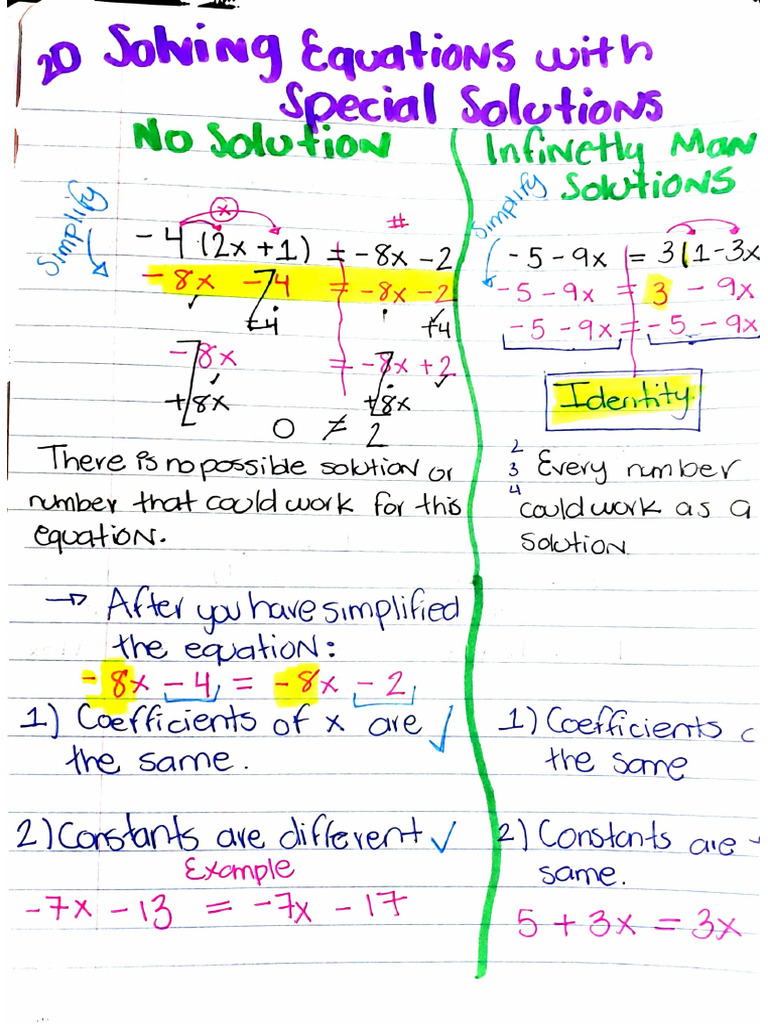 20 Solving Equations with
Special Solutions
No Solution
Simplify
x
#
-4(2x+1) = -8x-2
-8x -4 = -8x-2
+4 +4
-8x = -8x+2
+8x +8x
0 ≠ 2
There is no possible solution or
number that could work for this
equation.
→ After you have simplified
the equation:
-8x-4 = -8x-2
1) Coefficients of x are ✓
the same.
2) Constants are different ✓
Example
-7x-13 = -7x-17
Infinetly Man
Solutions
Simplify
-5-9x = 3(1-3x
-5-9x = 3-9x
-5-9x = -5-9x
Identity
2
3 Every number
4
could work as a
solution
1) Coefficients
the same
2) Constants are
same.
5+3x = 3x